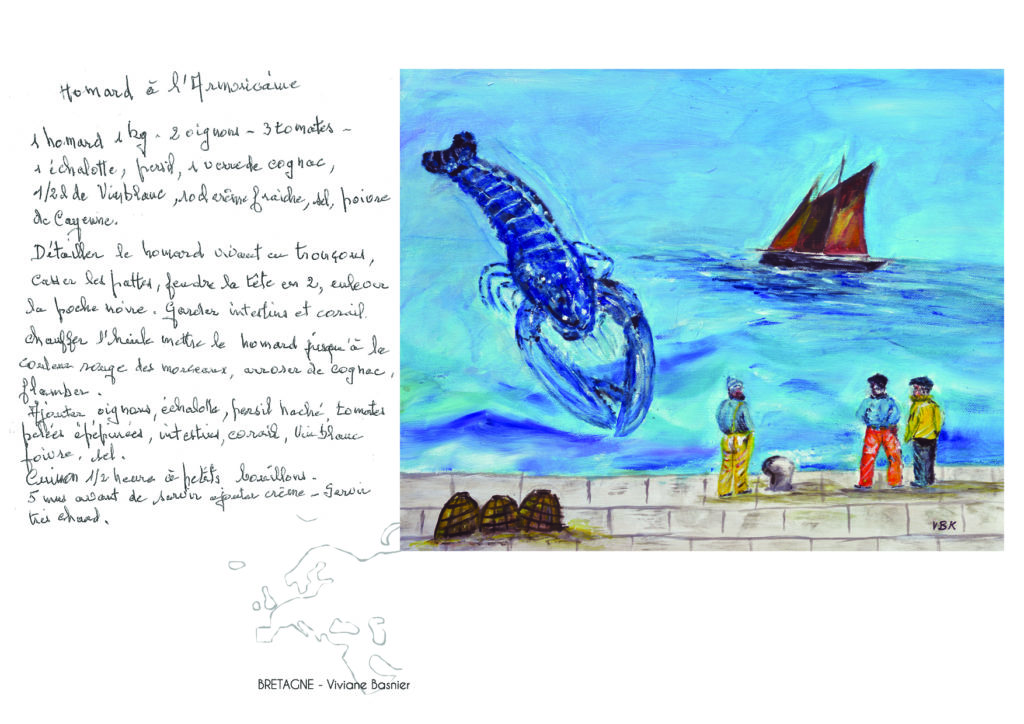 Homard à l'Armoricaine
1 homard 1 kg - 2 oignons - 3 tomates -
1 échalotte, persil, 1 verre de cognac,
1/2l de Vin blanc, 10cl crème fraîche, sel, poivre
de Cayenne.
Détailler le homard vivant en tronçons,
casser les pattes, fendre la tête en 2, enlever
la poche noire. Garder intestins et corail.
Chauffer l'huile mettre le homard jusqu'à la
couleur rouge des morceaux, arroser de cognac,
flamber.
Ajouter oignons, échalotte, persil haché, tomates
pelées épépinées, intestins, corail, Vin blanc
poivre, sel.
Cuisson 1/2 heure à petits bouillons.
5 mns avant de servir ajouter crème - Servir
très chaud.
VBK
BRETAGNE - Viviane Basnier